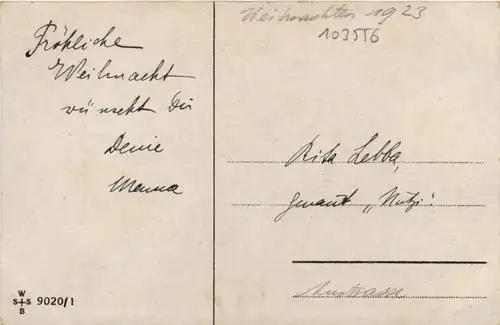 Weihnachten 1923
103556
Fröhliche
Weihnacht
wünscht Dir
Deine
Mama
Rita Lebba,
genannt „Mutzi".
W
S+S 9020/1
B